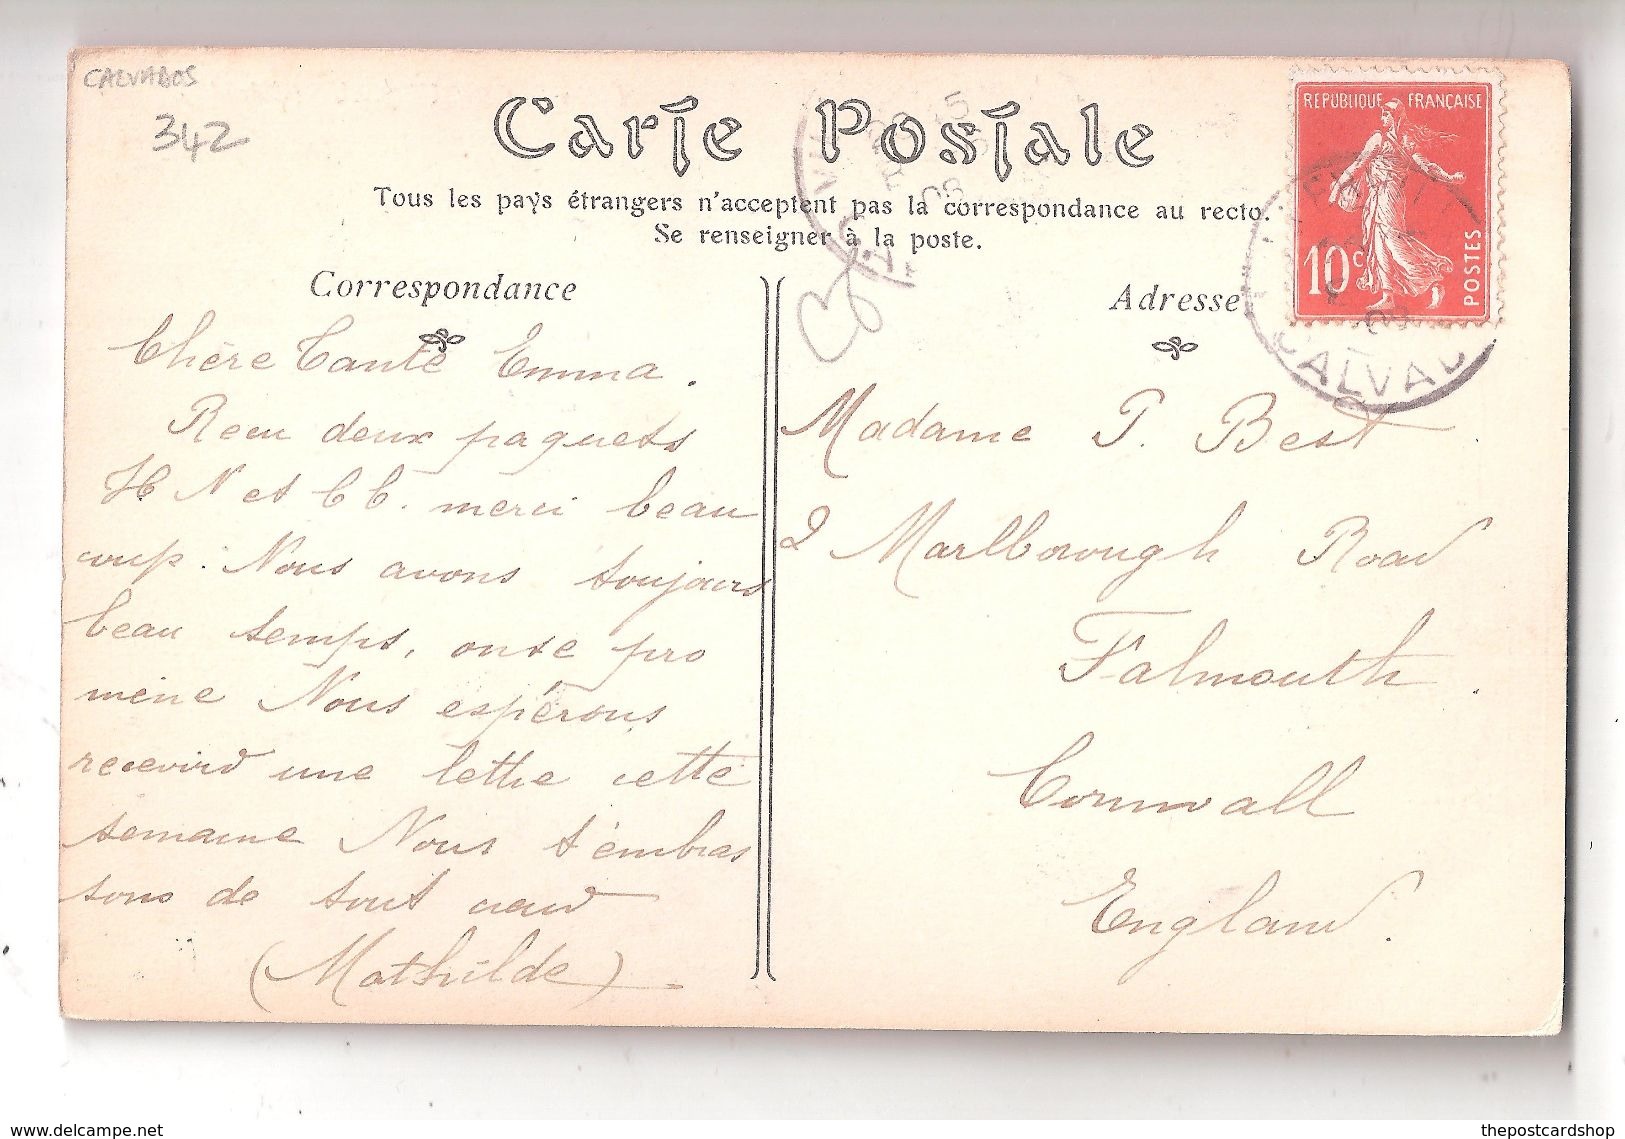 CALVADOS
342
Carte Postale
Tous les pays étrangers n'acceptent pas la correspondance au recto.
Se renseigner à la poste.
Correspondance
Chère Tante Emma.
Recu deux paquets
H N et C C. merci beau
coup. Nous avons toujours
beau temps, on se pro
mène Nous espérons
recevird une lettre cette
semaine Nous t'embras
sons de tout cœur
(Mathilde)
Adresse
Madame P. Best
2 Marlborough Road
Falmouth.
Cornwall
England.
REPUBLIQUE FRANÇAISE
10c
POSTES
CALVAD
delcampe.net
thepostcardshop